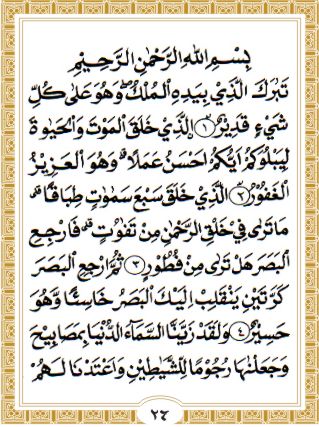 بِسْمِ اللهِ الرَّحْمٰنِ الرَّحِيْمِ
تَبٰرَكَ الَّذِيْ بِيَدِهِ الْمُلْكُ ۖ وَهُوَ عَلٰى كُلِّ
شَيْءٍ قَدِيْرٌ ۙ ﴿١﴾ اِلَّذِيْ خَلَقَ الْمَوْتَ وَالْحَيٰوةَ
لِيَبْلُوَكُمْ اَيُّكُمْ اَحْسَنُ عَمَلًا ۗ وَهُوَ الْعَزِيْزُ
الْغَفُوْرُ ۙ ﴿٢﴾ الَّذِيْ خَلَقَ سَبْعَ سَمٰوٰتٍ طِبَاقًا ۗ
مَا تَرٰى فِيْ خَلْقِ الرَّحْمٰنِ مِنْ تَفٰوُتٍ ۗ فَارْجِعِ
الْبَصَرَ هَلْ تَرٰى مِنْ فُطُوْرٍ ﴿٣﴾ ثُمَّ ارْجِعِ الْبَصَرَ
كَرَّتَيْنِ يَنْقَلِبْ اِلَيْكَ الْبَصَرُ خَاسِئًا وَّهُوَ
حَسِيْرٌ ﴿٤﴾ وَلَقَدْ زَيَّنَّا السَّمَاۤءَ الدُّنْيَا بِمَصَابِيْحَ
وَجَعَلْنٰهَا رُجُوْمًا لِّلشَّيٰطِيْنِ وَاَعْتَدْنَا لَهُمْ
٢٤